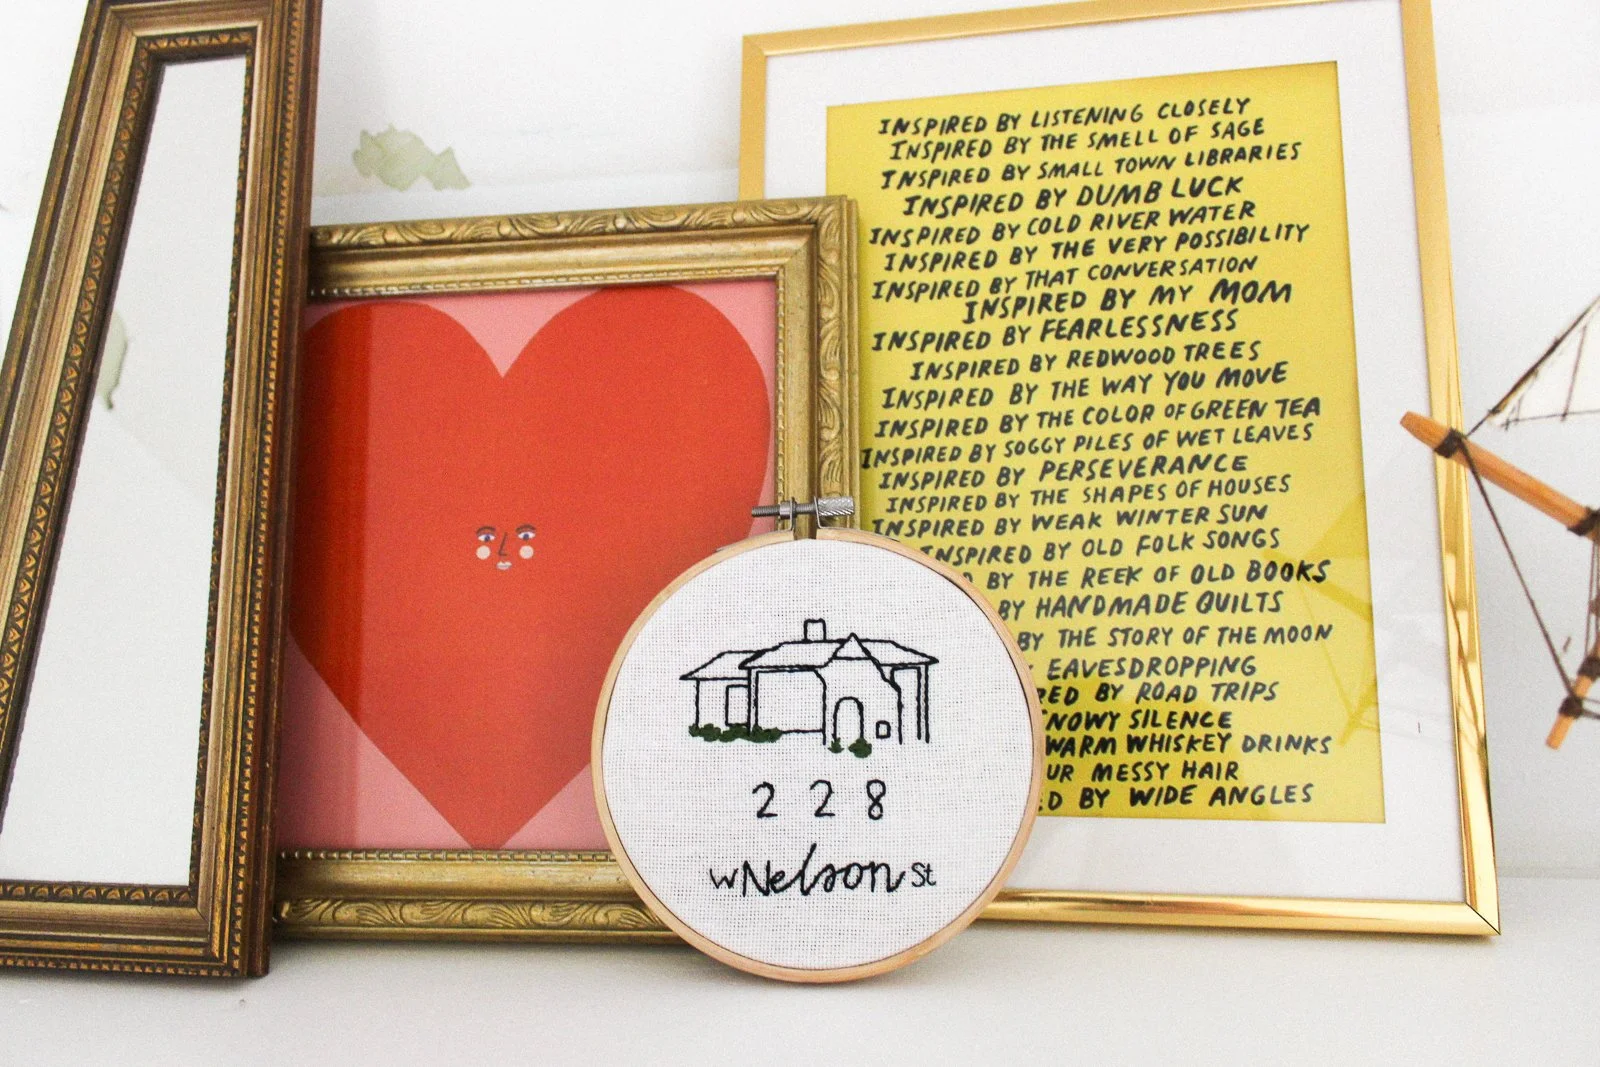 INSPIRED BY LISTENING CLOSELY
INSPIRED BY THE SMELL OF SAGE
INSPIRED BY SMALL TOWN LIBRARIES
INSPIRED BY DUMB LUCK
INSPIRED BY COLD RIVER WATER
INSPIRED BY THE VERY POSSIBILITY
INSPIRED BY THAT CONVERSATION
INSPIRED BY MY MOM
INSPIRED BY FEARLESSNESS
INSPIRED BY REDWOOD TREES
INSPIRED BY THE WAY YOU MOVE
INSPIRED BY THE COLOR OF GREEN TEA
INSPIRED BY SOGGY PILES OF WET LEAVES
INSPIRED BY PERSEVERANCE
INSPIRED BY THE SHAPES OF HOUSES
INSPIRED BY WEAK WINTER SUN
INSPIRED BY OLD FOLK SONGS
BY THE REEK OF OLD BOOKS
BY HANDMADE QUILTS
BY THE STORY OF THE MOON
EAVESDROPPING
RED BY ROAD TRIPS
SNOWY SILENCE
WARM WHISKEY DRINKS
UR MESSY HAIR
D BY WIDE ANGLES
2 2 8
W Nelson St